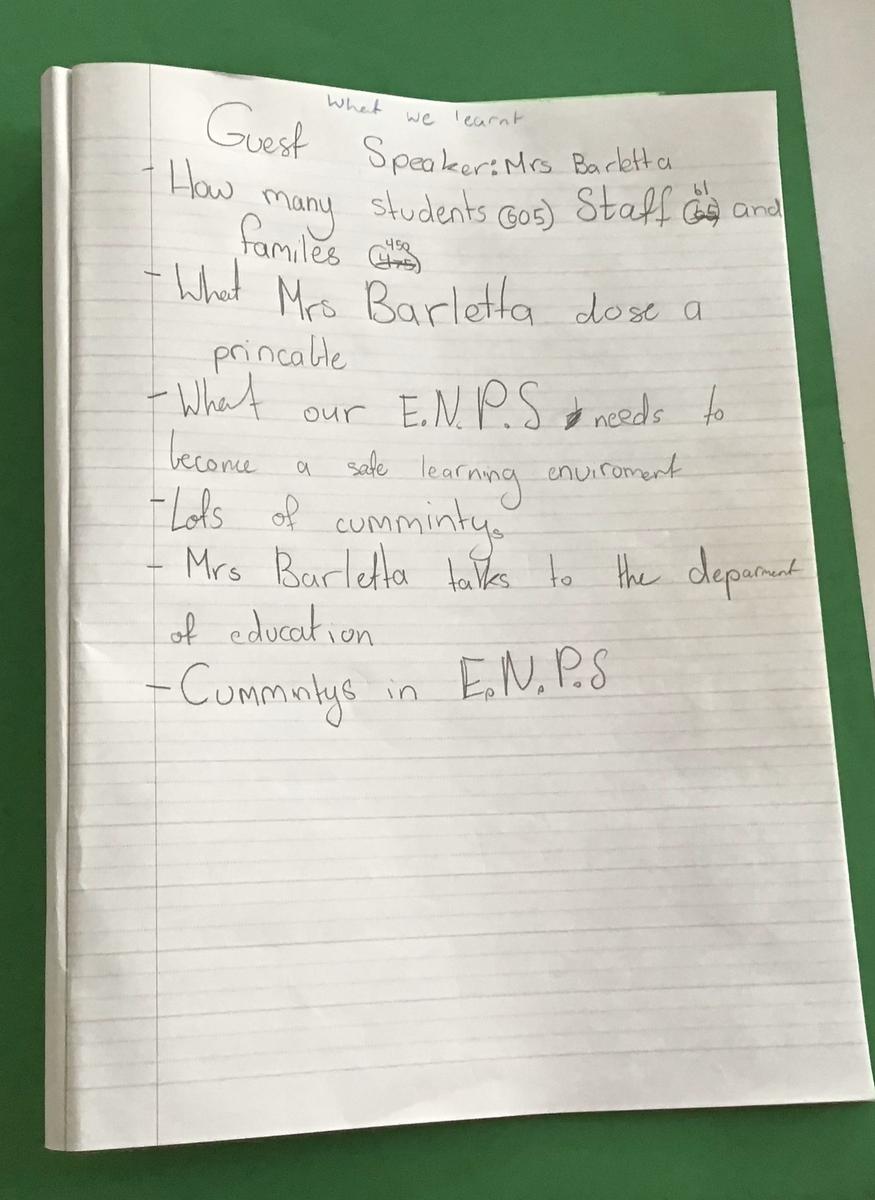 What we learnt
Guest Speaker: Mrs Barletta
- How many students (605) Staff 61 and
familes 450
- What Mrs Barletta dose a
princable
- What our E.N.P.S needs to
become a safe learning enviroment
- Lots of cummintys
- Mrs Barletta talks to the deparment
of education
- Cummntys in E.N.P.S